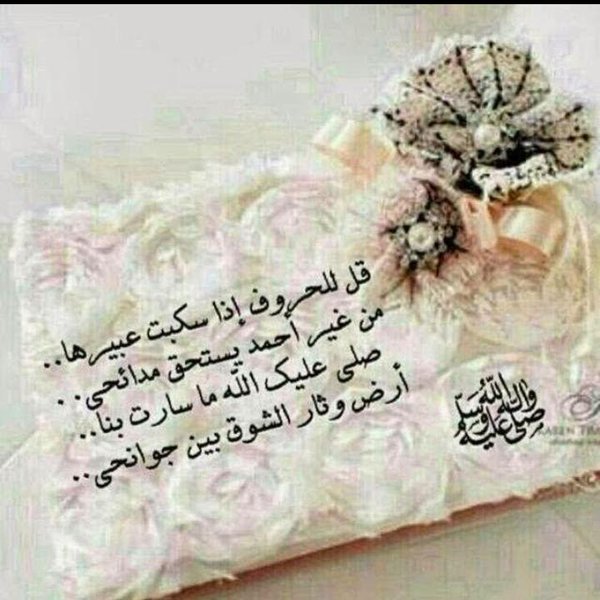 قل للحروف إذا سكبت عبيرها..
من غير أحمد يستحق مدائحى..
صلى عليك الله ما سارت بنا..
أرض وثار الشوق بين جوانحى..
صلى الله عليه وآله وسلم